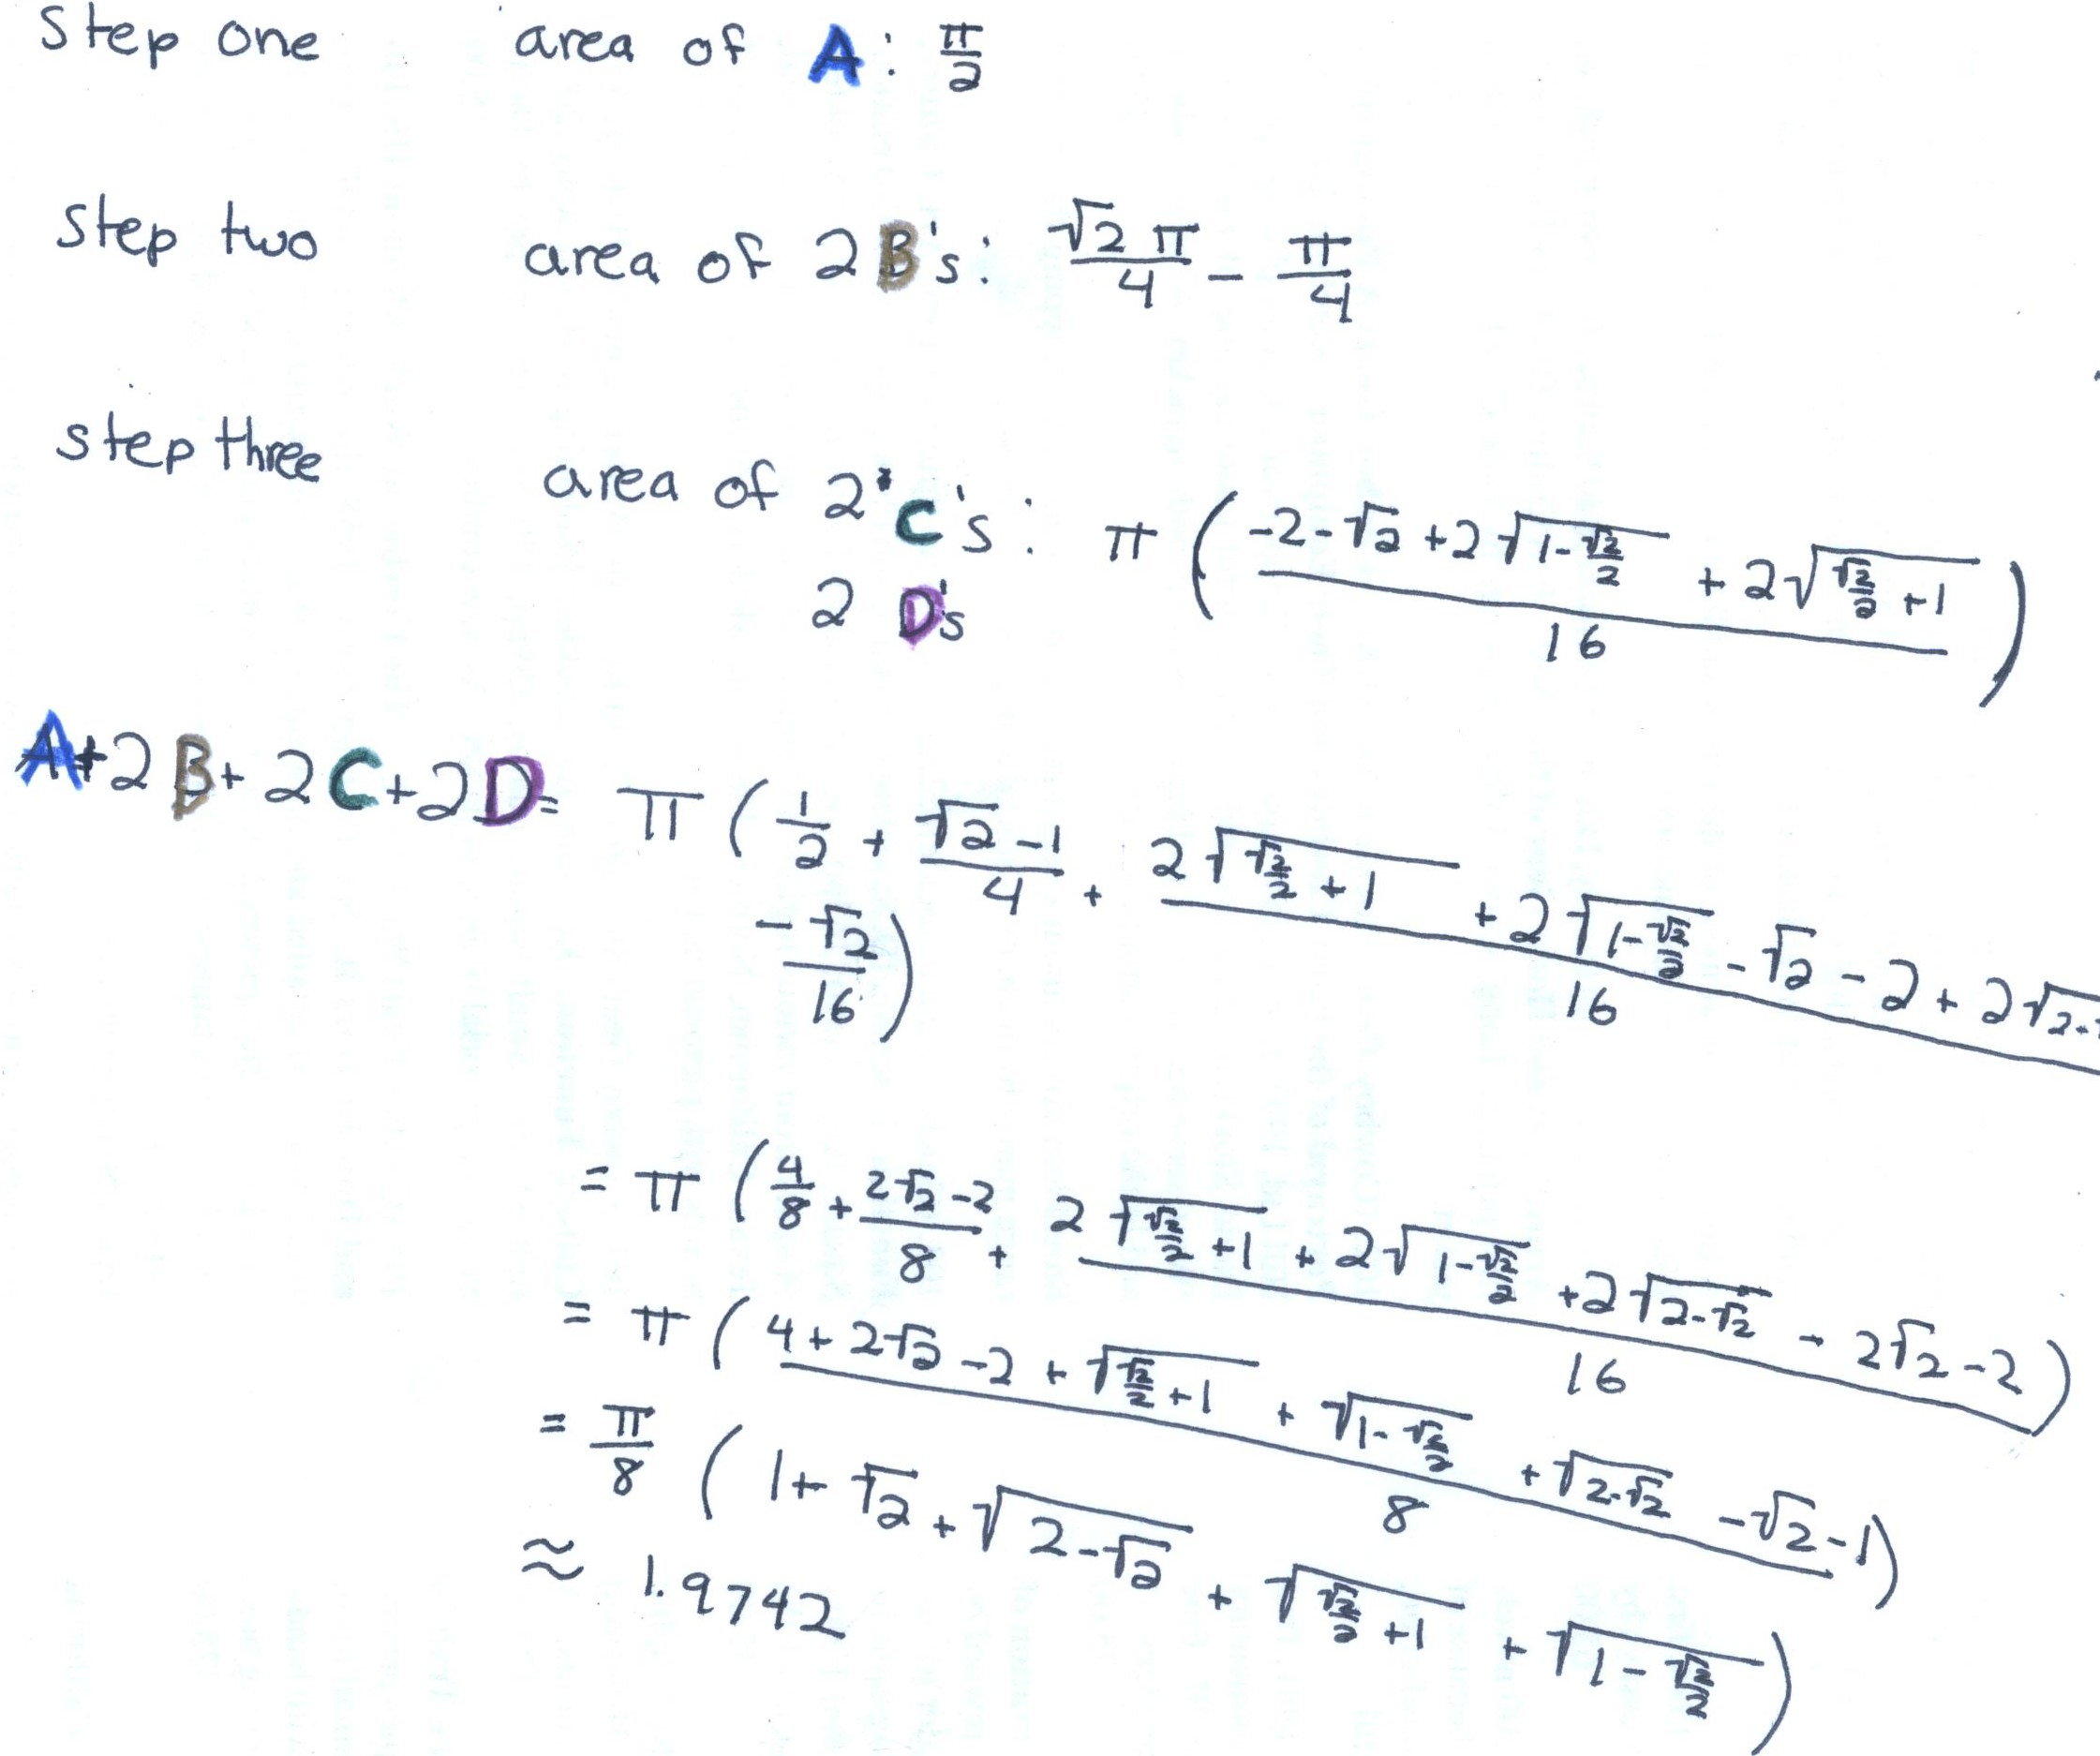 step one area of A: π/2
step two area of 2 B's: √2 π/4 - π/4
step three
area of 2 C's: π ( (-2-√2 +2√(1-√2/2) + 2√(√2/2 +1))/16 )
2 D's
A+2B+2C+2D= π ( 1/2 + (√2 -1)/4 + (2√(√2/2 +1) +2√(1-√2/2) -√2 -2 + 2√2-
-√2/16 )
= π ( 4/8 + (2√2 -2)/8 + (2√(√2/2 +1) + 2√(1-√2/2) +2√(2-√2) - 2√2 -2)/16 )
= π ( (4+2√2 -2 + √(√2/2 +1) + √(1-√2/2) +√(2-√2) -√2 -1)/8 )
= π/8 ( 1+ √2 + √(2-√2) + √(√2/2 +1) + √(1-√2/2) )
≈ 1.9742